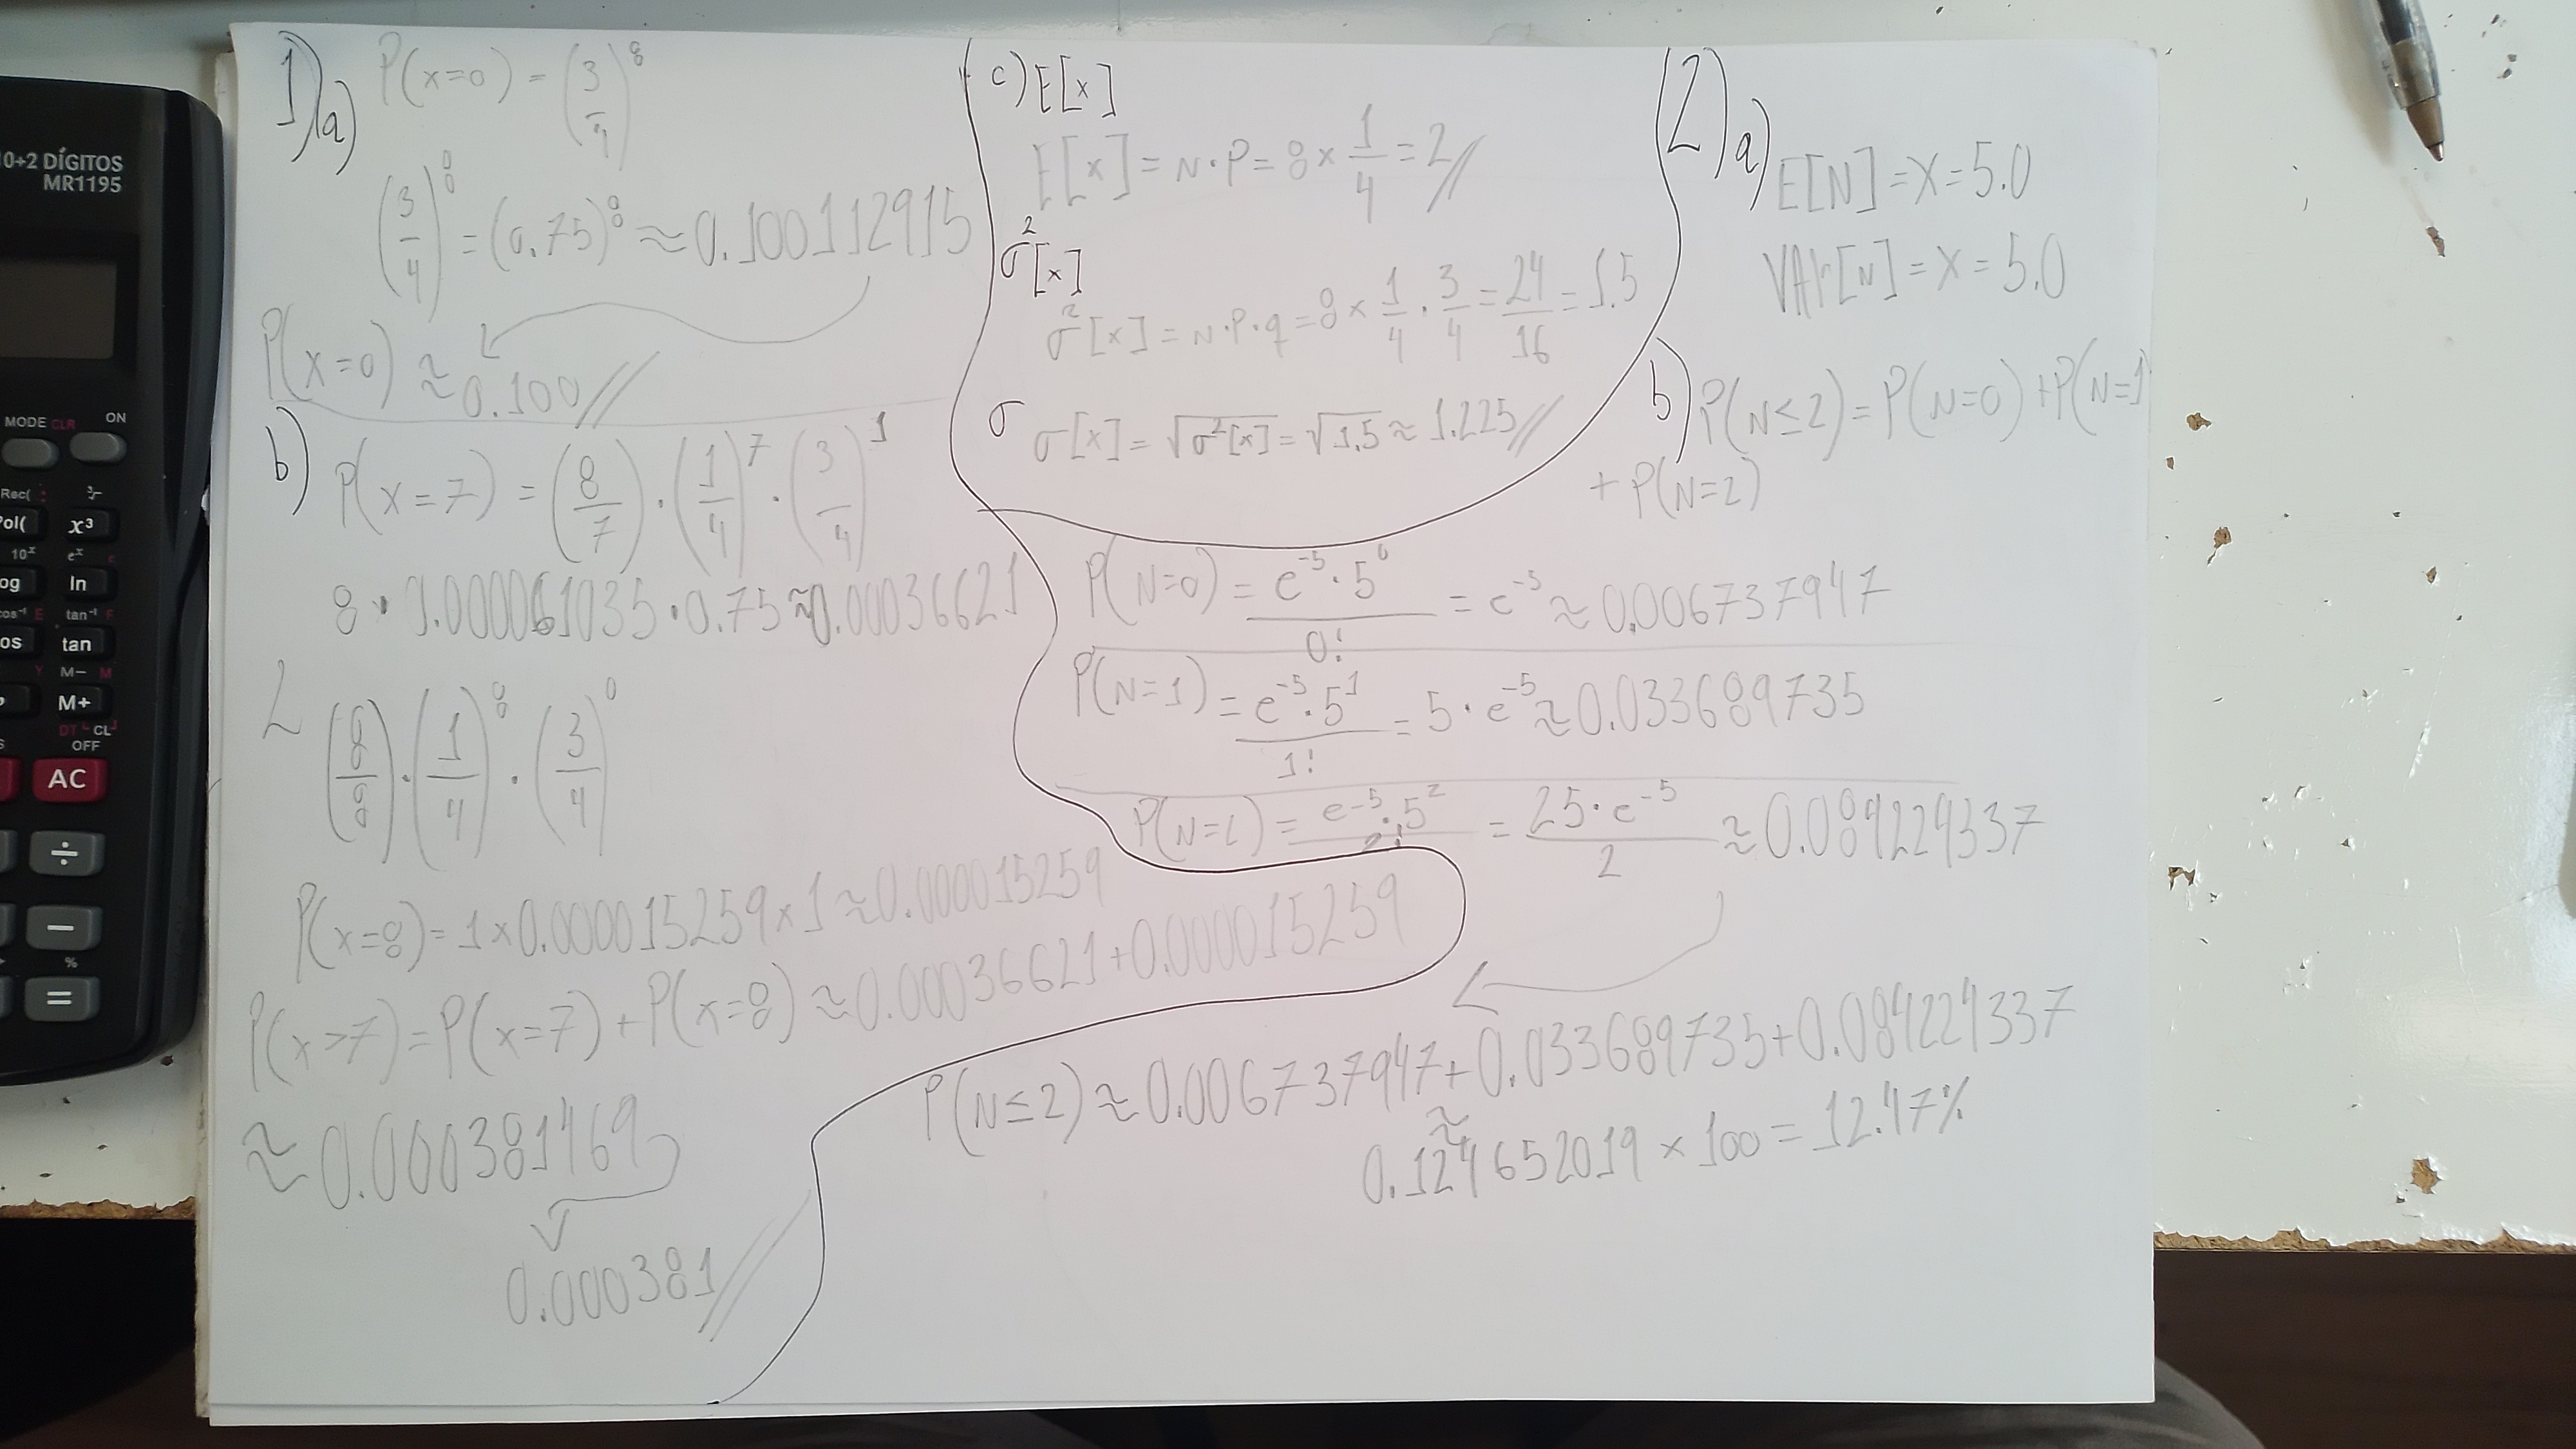 10+2 DÍGITOS
MR1195
MODE CLR ON
Pol( x³
log ln
cos tan
M+
AC
OFF
÷
−
=
1) a) P(x=0) = (3/4)^8
(3/4)^8 = (0.75)^8 ≈ 0.100112915
P(x=0) ≈ 0.100//
b) P(x=7) = (8/7) · (1/4)^7 · (3/4)^1
8 · 0.000061035 · 0.75 ≈ 0.00036621
(8/8) · (1/4)^8 · (3/4)^0
P(x=8) = 1 × 0.000015259 × 1 ≈ 0.000015259
P(x>7) = P(x=7) + P(x=8) ≈ 0.00036621 + 0.000015259
≈ 0.000381469
0.000381//
c) E[x]
E[x] = N·P = 8 × 1/4 = 2//
σ²[x]
σ²[x] = N·P·q = 8 × 1/4 · 3/4 = 24/16 = 1.5
σ
σ[x] = √σ²[x] = √1.5 ≈ 1.225//
2) a) E[N] = X = 5.0
VAr[N] = X = 5.0
b) P(N≤2) = P(N=0) + P(N=1
+ P(N=2)
P(N=0) = e^-5 · 5^0 / 0! = e^-5 ≈ 0,006737947
P(N=1) = e^-5 · 5^1 / 1! = 5 · e^-5 ≈ 0.033689735
P(N=2) = e^-5 · 5² / 2! = 25 · e^-5 / 2 ≈ 0.084224337
P(N≤2) ≈ 0.006737947 + 0.033689735 + 0.084224337
≈
0.124652019 × 100 = 12.47%